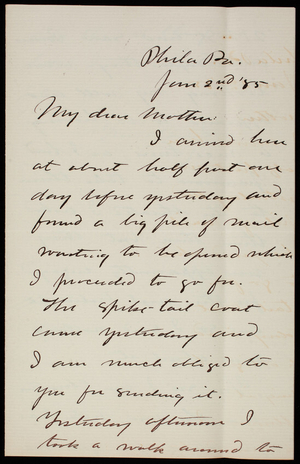 Phila Pa.
Jan 2nd '85
My dear Mother:
I arrived here
at about half past one
day before yesterday and
found a big pile of mail
waiting to be opened which
I proceeded to go for.
The spike-tail coat
came yesterday and
I am much obliged to
you for sending it.
Yesterday afternoon I
took a walk around to